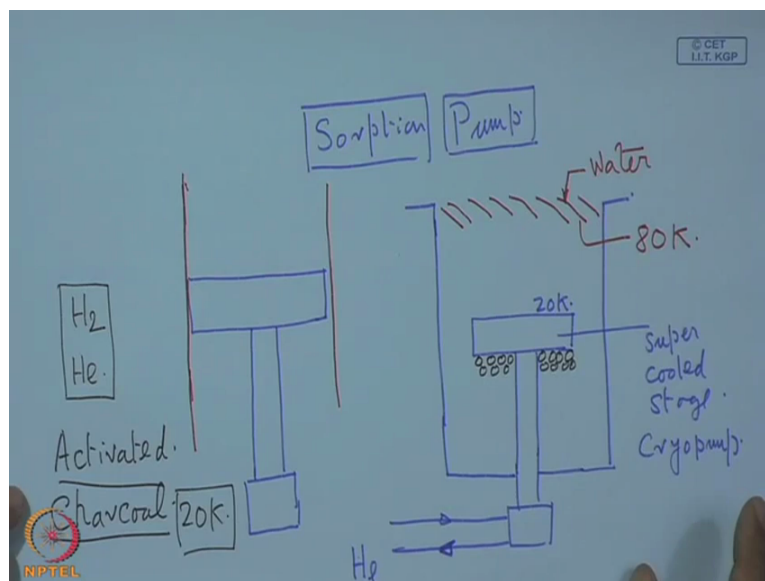 © CET
I.I.T. KGP
Sorption Pump
Water
80K.
20K.
H2
He.
Super
Cooled
Stage.
Cryopump.
Activated.
Charcoal 20K.
He
NPTEL